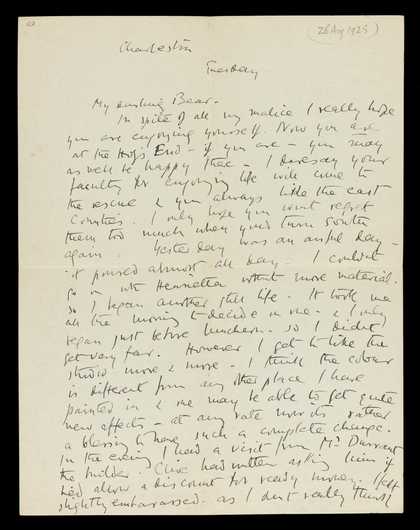 (26 Aug 1925)
Charleston
Tuesday
My darling Bear.
In spite of all my malice I really hope
you are enjoying yourself. Now you are
at the Hog's End - if you are - you may
as well be happy there - I daresay your
faculty for enjoying life will come to
the rescue & you always like the east
counties. I only hope you wont regret
them too much when you'd turn South
again. Yesterday was an awful day -
it poured almost all day - I couldn't
go on with Henrietta without more material.
so I began another still life. It took me
all the morning to decide on one - & I only
began just before luncheon. so I didn't
get very far. However I get to like the
studio more & more - I think the colour
is different from any other place I have
painted in & one may be able to get quite
new effects - at any rate now its rather
a blessing to have such a complete change.
In the evening I had a visit from Mr Durrant
the builder Clive had written asking him if
he'd allow a discount for ready money. I felt
slightly embarrassed. as I dont really think